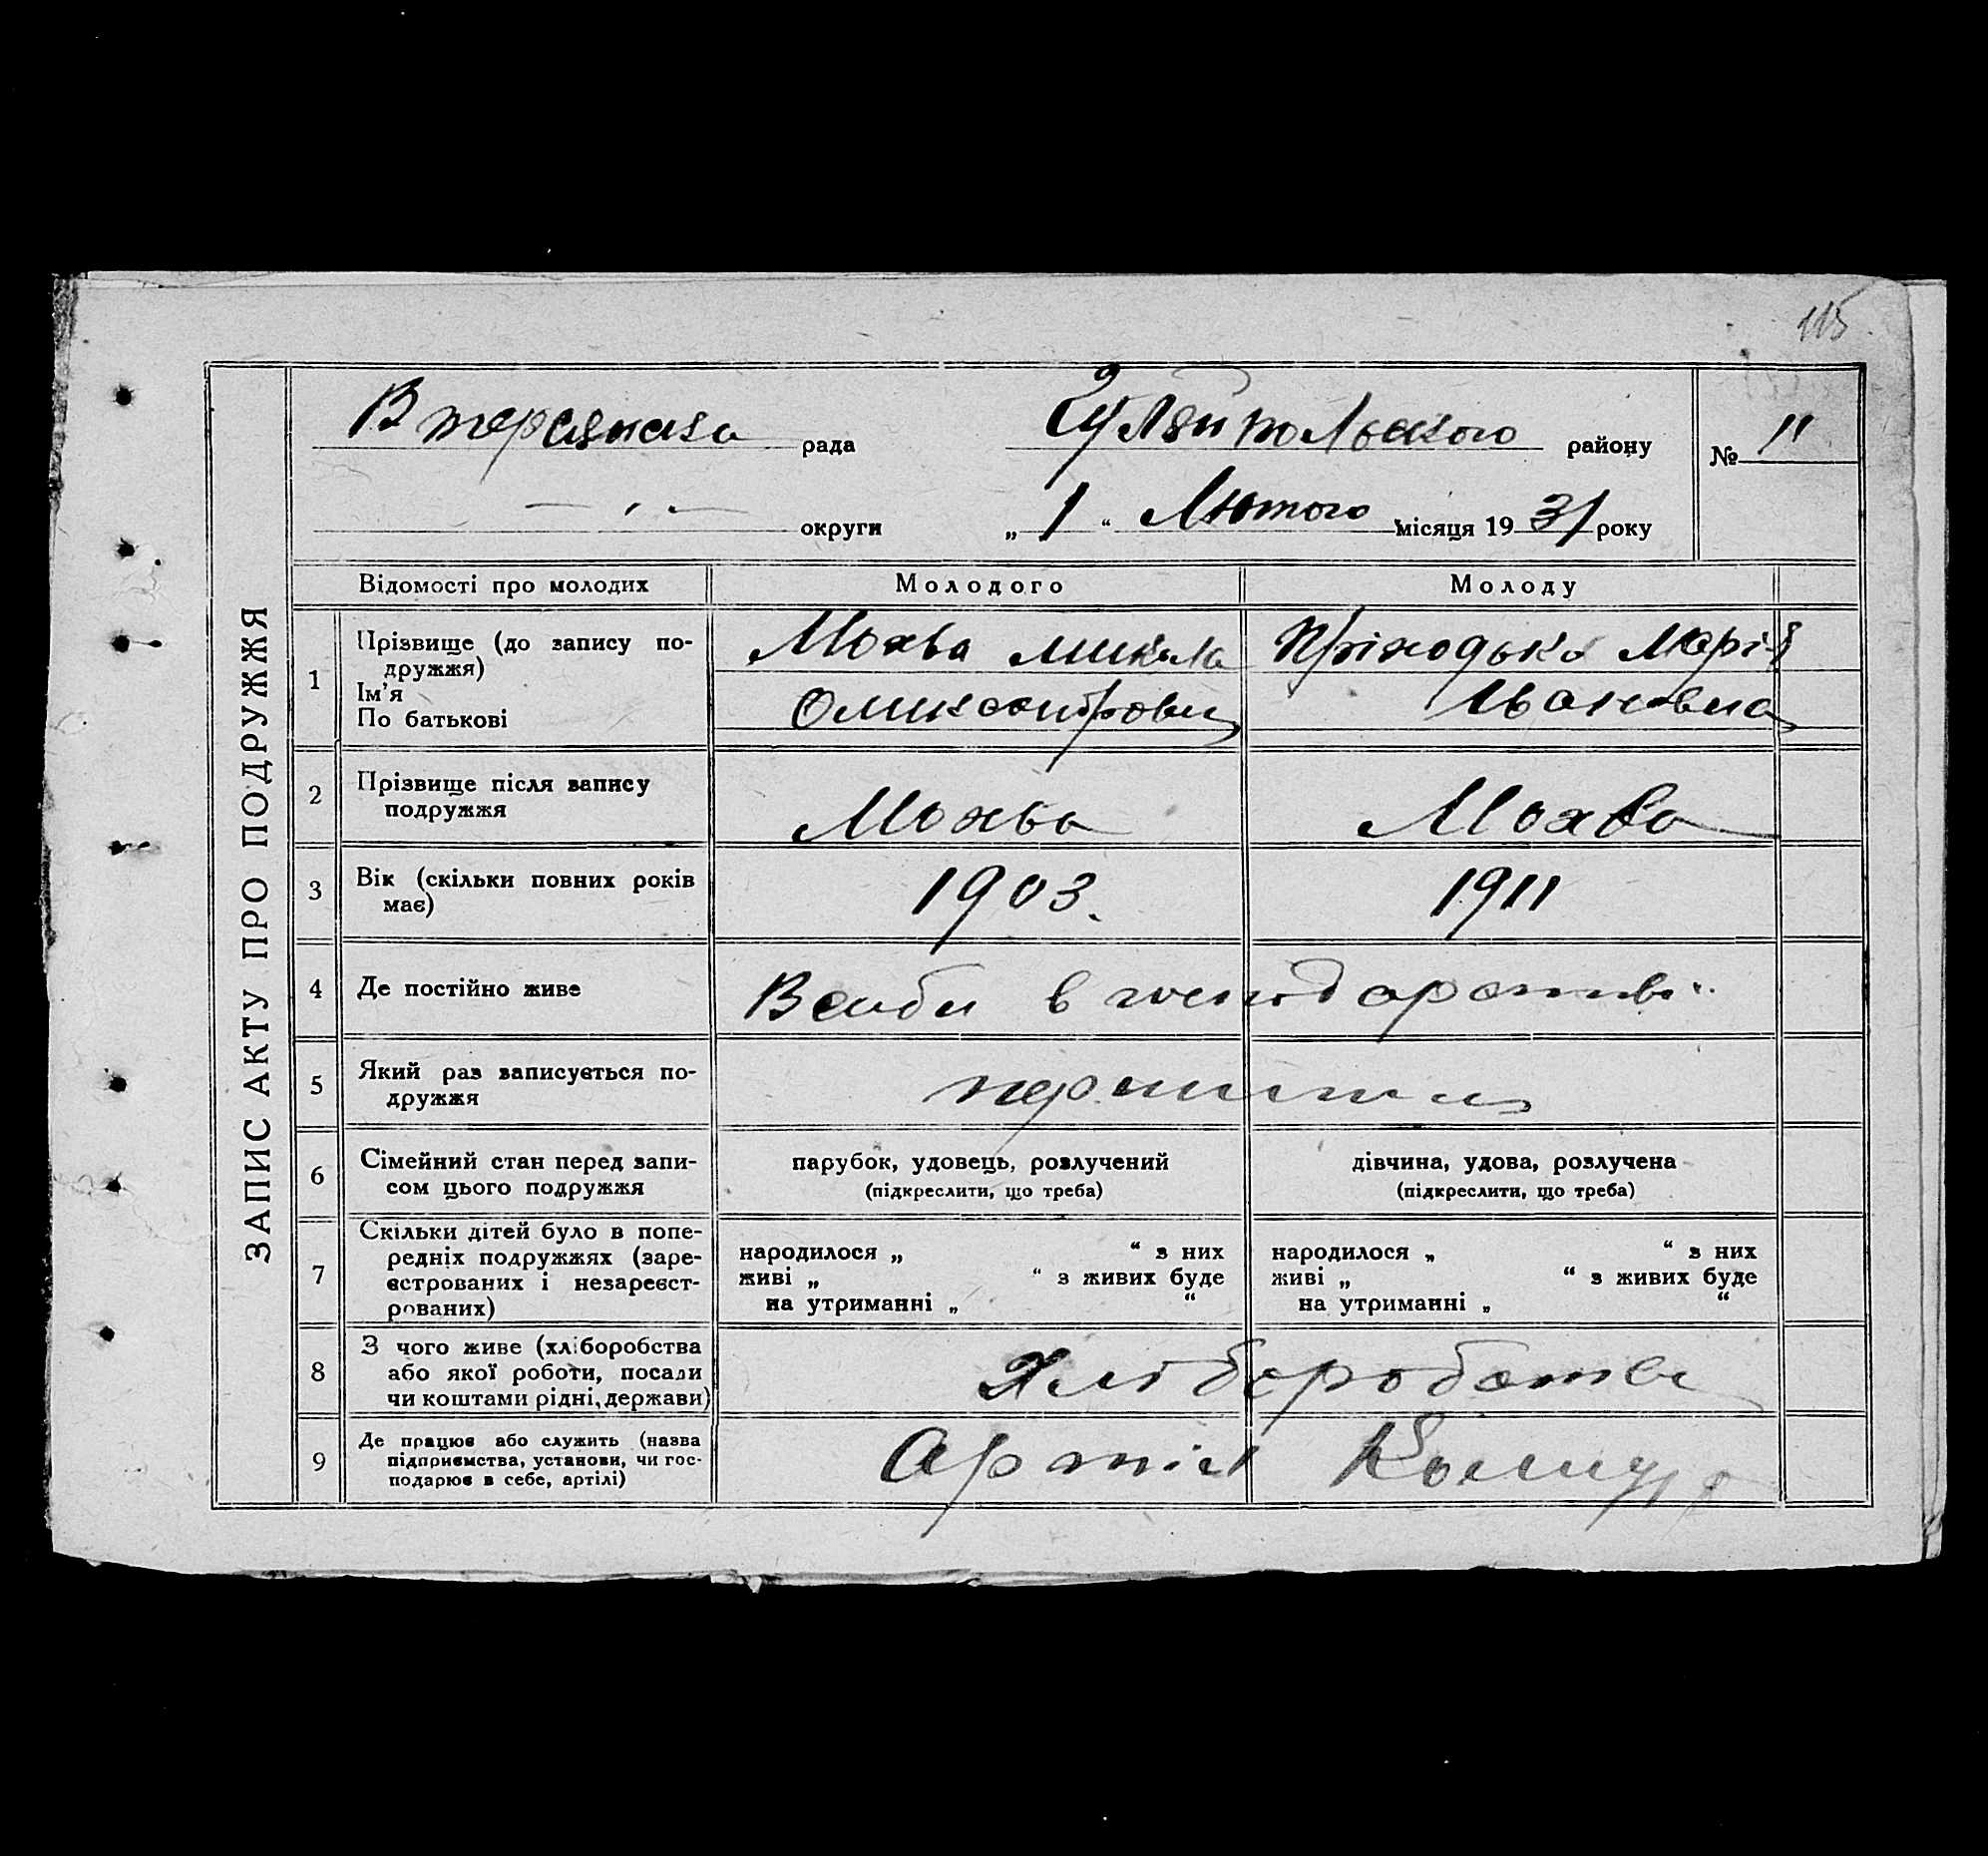 115
ЗАПИС АКТУ ПРО ПОДРУЖЖЯ
рада
Гуляйпольского району
№ 11
округи
„ 1 “ Лютого місяця 1931 року
Відомості про молодих Молодого Молоду
1 Прізвище (до запису по-
дружжя)
Ім’я
По батькові
Мохва Микола
Приходько Марія
Ивановна
2 Прізвище після запису
подружжя
Мохва Мохва
3 Вік (скільки повних років
має)
1903. 1911
4 Де постійно живе
в господарстві
5 Який раз записується по-
дружжя
6 Сімейний стан перед запи-
сом цього подружжя
парубок, удовець, розлучений
(підкреслити, що треба)
дівчина, удова, розлучена
(підкреслити, що треба)
7 Скільки дітей було в попе-
редніх подружжях (заре-
єстрованих і незареєст-
рованих)
народилося „ “ з них
живі „ “ з живих буде
на утриманні „ “
народилося „ “ з них
живі „ “ з живих буде
на утриманні „ “
8 З чого живе (хліборобства
або якої роботи, посади
чи коштами рідні, держави)
Хліборобство
9 Де працює або служить (назва
підприємства, установи, чи гос-
подарює в себе, артілі)
Артіл